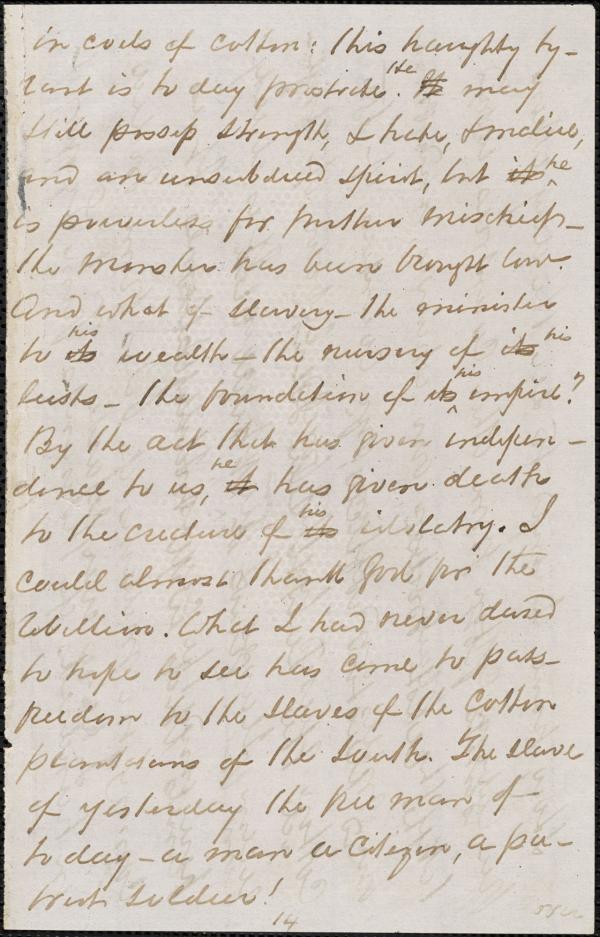 in coils of cotton: this haughty ty-
rant is to day prostrate. It he may
still possess strength, & hate, & malice,
and an unsubdued spirit, but its he
is powerless for further mischief–
the monster has been brought low.
And what of slavery – the minister
to its his wealth – the nursery of its his
lusts – the foundation of its his empire?
By the act that has given indepen-
dence to us, it he has given death
to the creature of its his idolatry. I
could almost thank God for the
rebellion. What I had never dared
to hope to see has come to pass–
freedom to the slaves of the Cotton
plantations of the South. The slave
of yesterday the free man of
to day – a man a citizen, a pa-
triot soldier!
14
over